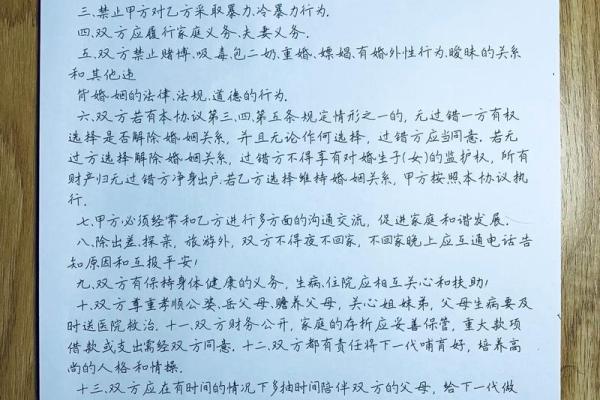 三.禁止甲方对乙方采取暴力.冷暴力行为.
四.双方应履行家庭义务.夫妻义务.
五.双方禁止赌博.吸毒包二奶.重婚.嫖娼.有婚外性行为.暧昧的关系
和其他违
背婚姻的法律.法规.道德的行为.
六.双方若有本协议第三.四.第五条规定情形之一的,无过错一方有权
选择是否解除婚姻关系,并且无论作何选择,过错方应当同意.若无
过方选择解除婚姻关系,过错方不得享有对婚生子(女)的监护权,所有
财产归无过错方净身出户.若乙方选择维持婚姻关系,甲方按照本协议执
行.
七.甲方必须经常和乙方进行多方面的沟通交流,促进家庭和谐发展.
八.除出差.探亲,旅游外,双方不得夜不回家,不回家晚上应互通电话告
知原因和互报平安!
九.双方有保持身体健康的义务,生病.住院应相互关心和扶助!
十.双方尊重孝顺公婆.岳父母.赡养父母,关心姐妹弟,父母生病要及
时送医院救治.十一.双方财务公开,家庭的存折应妥善保管,重大款项
借款或支出需经双方同意.十二.双方都有责任将下一代哺育好,培养高
尚的人格和情操.
十三.双方应在有时间的情况下多抽时间陪伴双方的父母,给下一代做